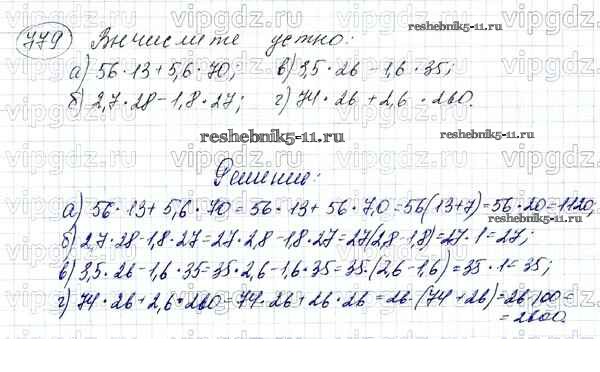 779 Вычислите устно:
а) 56·13+5,6·70; в) 3,5·26-1,6·35;
б) 2,7·28-1,8·27; г) 74·26+2,6·260.
Решение:
а) 56·13+5,6·70=56·13+56·7,0=56(13+7)=56·20=1120;
б) 2,7·28-1,8·27=27·2,8-1,8·27=27(2,8-1,8)=27·1=27;
в) 3,5·26-1,6·35=35·2,6-1,6·35=35·(2,6-1,6)=35·1=35;
г) 74·26+2,6·260=74·26+26·26=26·(74+26)=26·100=
=2600.
vipgdz.com
reshebnik5-11.ru
reshebnik5-11.ru
reshebnik5-11.ru